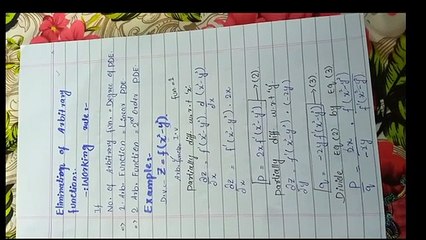 Elimination of Arbitrary
function:-
-: Working rule:-
If
No. of Arbitrary fun. = Degree of PDE
⇒ 1 Arb. Function = Linear PDE
⇒ 2 Arb. Function = 2nd order PDE
Example:-
Div:- Z = f(x²-y²)
Arb. func I.V fun=1
Partially diff w.r.t 'x'
∂z/∂x = f'(x²-y²) ∂/∂x (x²-y²)
∂z/∂x = f'(x²-y²). 2x
P = 2x f'(x²-y²) → (2)
Partially diff w.r.t 'y'
∂z/∂y = f'(x²-y²). (-2y)
q = -2y f'(x²-y²) → (3)
Divide Eq (2) by Eq (3)
P/q = 2x/-2y . f'(x²-y²)/f'(x²-y²)